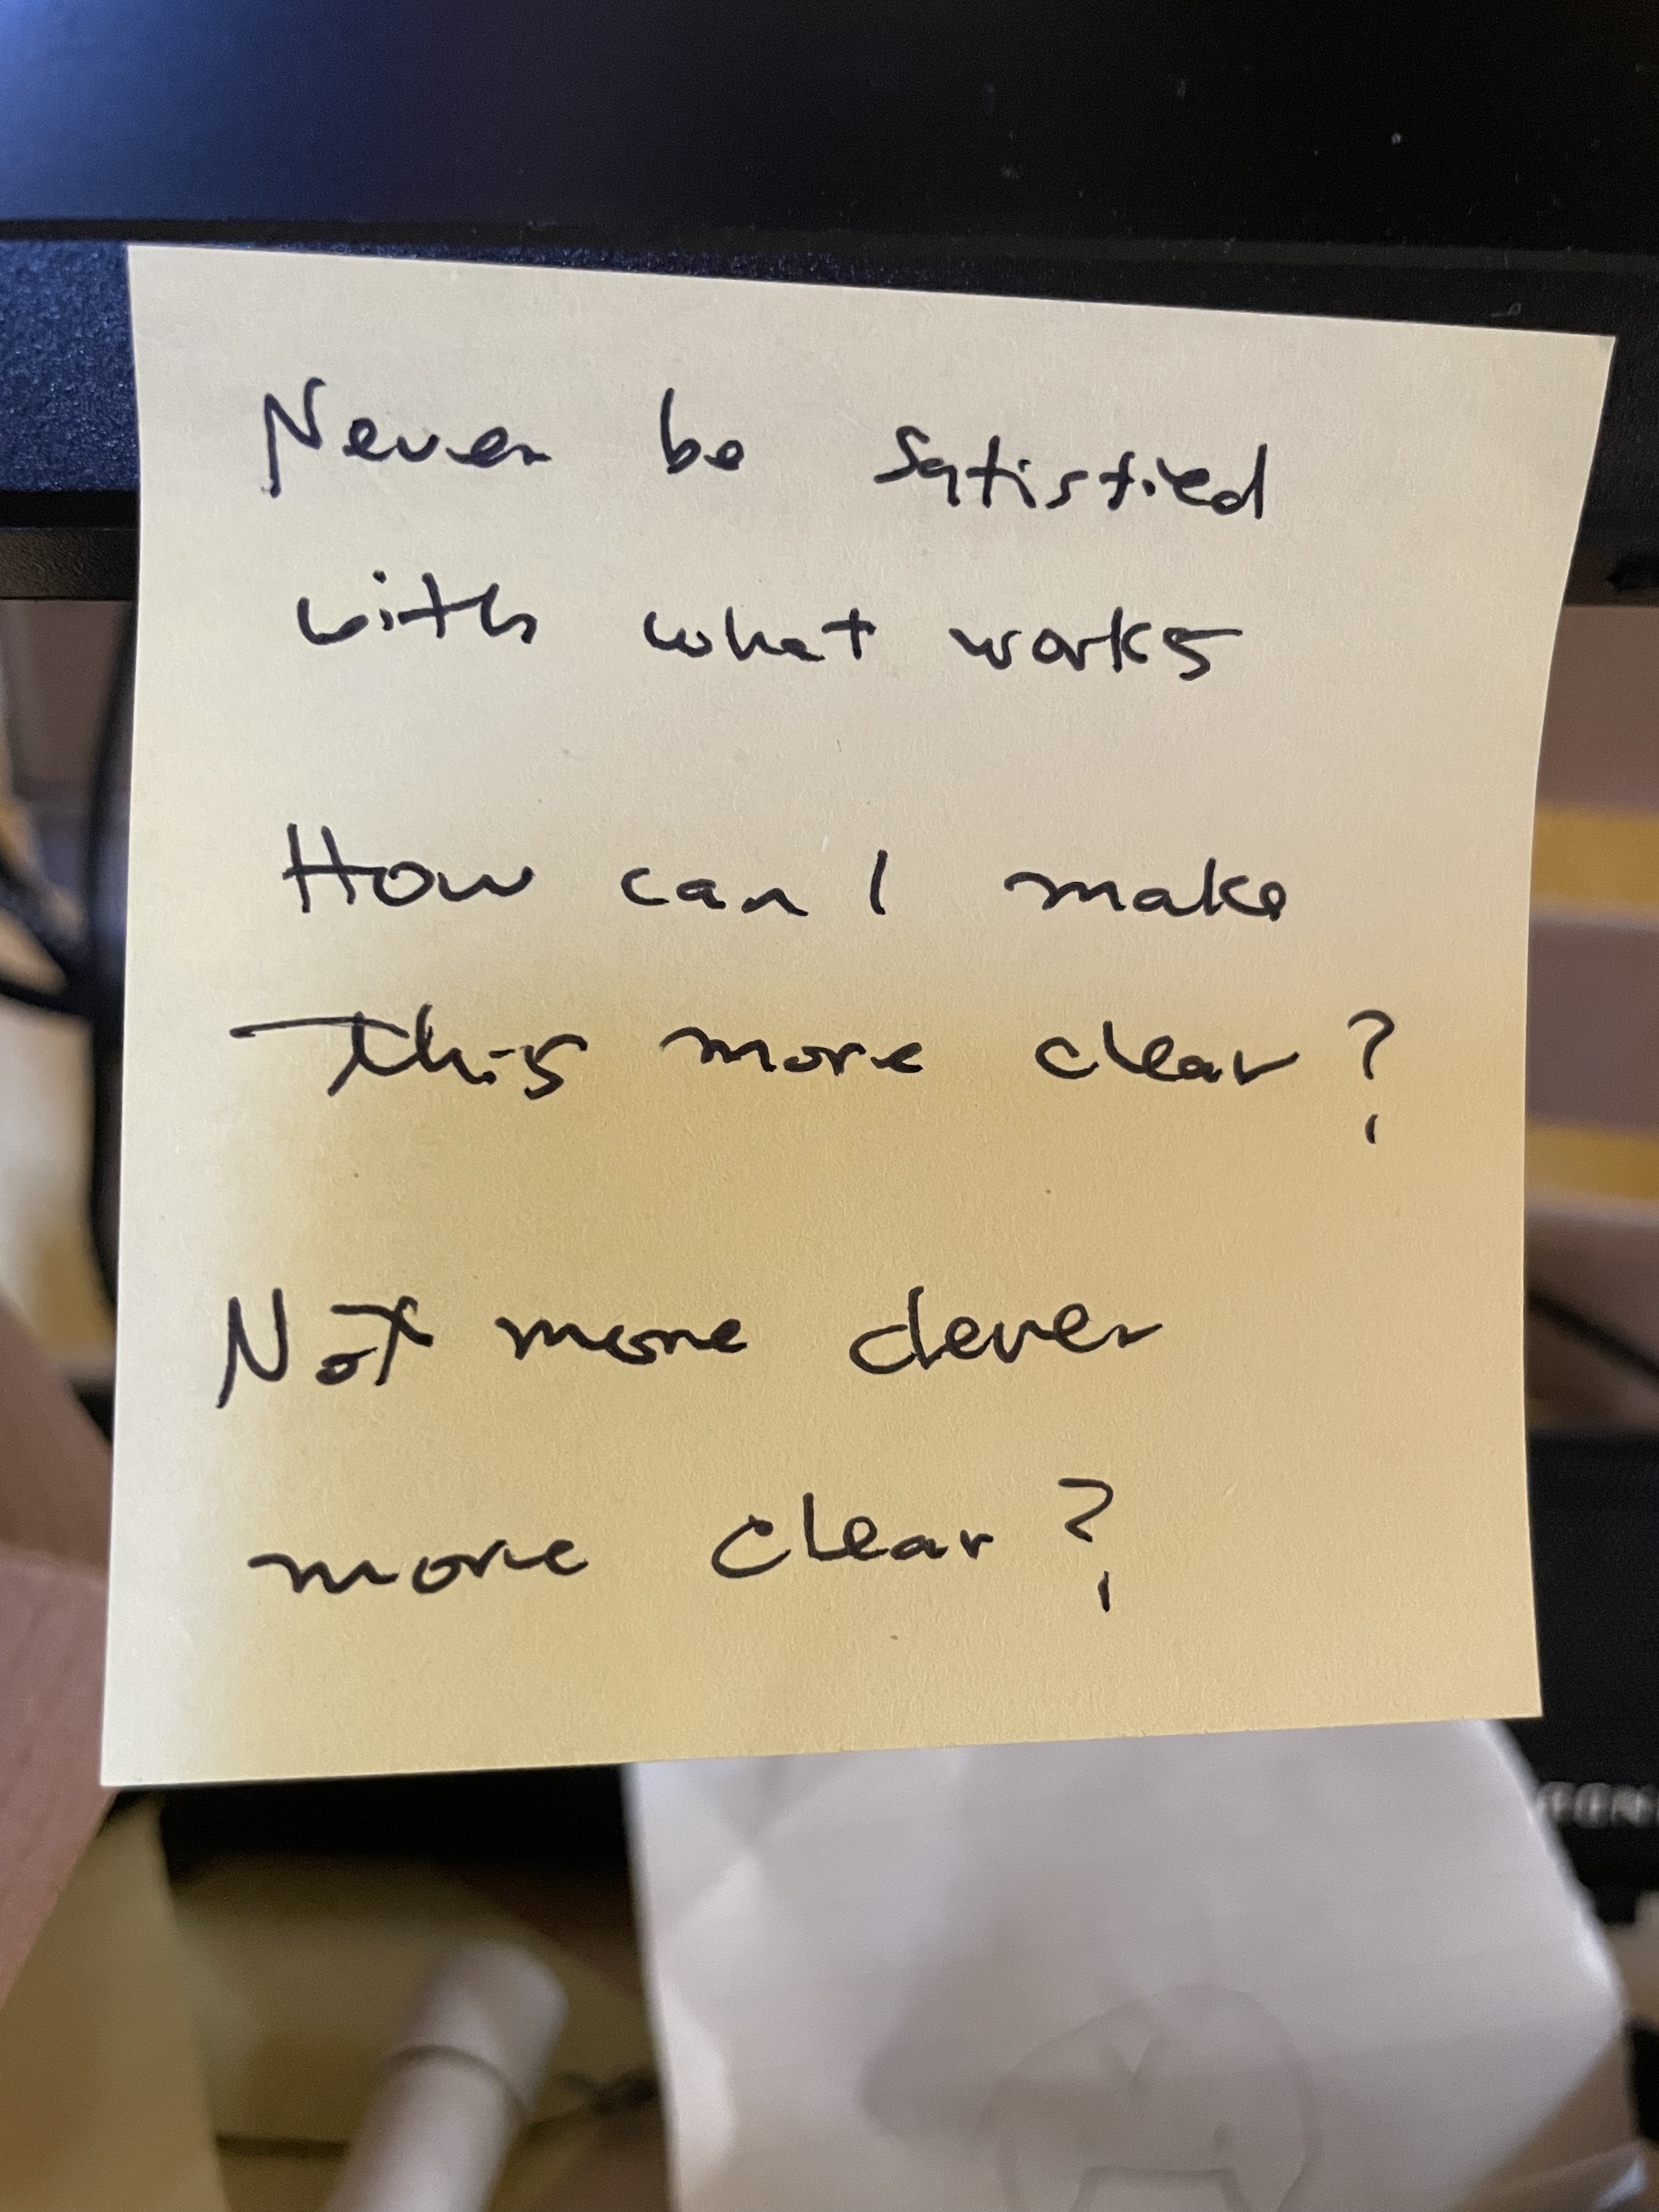 Never be satisfied
with what works
How can I make
this more clear?
Not more clever
more clear?